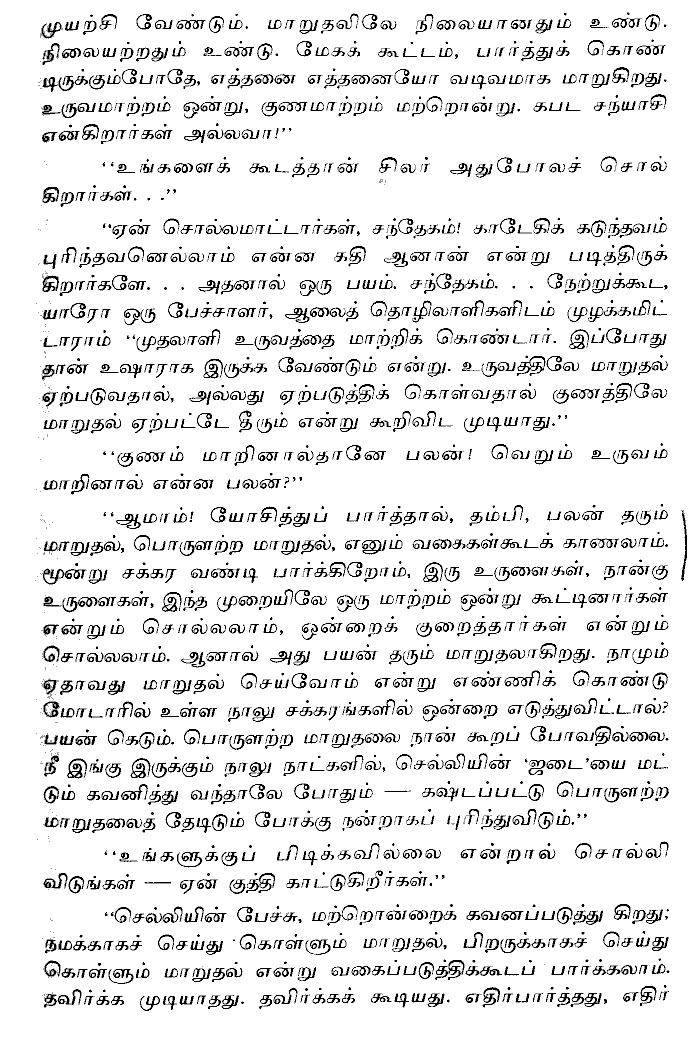 முயற்சி வேண்டும். மாறுதலிலே நிலையானதும் உண்டு.
நிலையற்றதும் உண்டு. மேகக் கூட்டம், பார்த்துக் கொண்
டிருக்கும்போதே, எத்தனை எத்தனையோ வடிவமாக மாறுகிறது.
உருவமாற்றம் ஒன்று, குணமாற்றம் மற்றொன்று. கபட சந்யாசி
என்கிறார்கள் அல்லவா!’’
‘‘உங்களைக் கூடத்தான் சிலர் அதுபோலச் சொல்
கிறார்கள். . .’’
‘‘ஏன் சொல்லமாட்டார்கள், சந்தேகம்! காடேகிக் கடுந்தவம்
புரிந்தவனெல்லாம் என்ன கதி ஆனான் என்று படித்திருக்
கிறார்களே. . . அதனால் ஒரு பயம். சந்தேகம். . . நேற்றுக்கூட,
யாரோ ஒரு பேச்சாளர், ஆலைத் தொழிலாளிகளிடம் முழக்கமிட்
டாராம் ‘‘முதலாளி உருவத்தை மாற்றிக் கொண்டார். இப்போது
தான் உஷாராக இருக்க வேண்டும் என்று. உருவத்திலே மாறுதல்
ஏற்படுவதால், அல்லது ஏற்படுத்திக் கொள்வதால் குணத்திலே
மாறுதல் ஏற்பட்டே தீரும் என்று கூறிவிட முடியாது.’’
‘‘குணம் மாறினால்தானே பலன்! வெறும் உருவம்
மாறினால் என்ன பலன்?’’
‘‘ஆமாம்! யோசித்துப் பார்த்தால், தம்பி, பலன் தரும்
மாறுதல், பொருளற்ற மாறுதல், எனும் வகைகள்கூடக் காணலாம்.
மூன்று சக்கர வண்டி பார்க்கிறோம், இரு உருளைகள், நான்கு
உருளைகள், இந்த முறையிலே ஒரு மாற்றம் ஒன்று கூட்டினார்கள்
என்றும் சொல்லலாம், ஒன்றைக் குறைத்தார்கள் என்றும்
சொல்லலாம். ஆனால் அது பயன் தரும் மாறுதலாகிறது. நாமும்
ஏதாவது மாறுதல் செய்வோம் என்று எண்ணிக் கொண்டு
மோடாரில் உள்ள நாலு சக்கரங்களில் ஒன்றை எடுத்துவிட்டால்?
பயன் கெடும். பொருளற்ற மாறுதலை நான் கூறப் போவதில்லை.
நீ இங்கு இருக்கும் நாலு நாட்களில், செல்லியின் ‘ஜடை’யை மட்
டும் கவனித்து வந்தாலே போதும் — கஷ்டப்பட்டு பொருளற்ற
மாறுதலைத் தேடிடும் போக்கு நன்றாகப் புரிந்துவிடும்.’’
‘‘உங்களுக்குப் பிடிக்கவில்லை என்றால் சொல்லி
விடுங்கள் — ஏன் குத்தி காட்டுகிறீர்கள்.’’
‘‘செல்லியின் பேச்சு, மற்றொன்றைக் கவனப்படுத்து கிறது;
நமக்காகச் செய்து கொள்ளும் மாறுதல், பிறருக்காகச் செய்து
கொள்ளும் மாறுதல் என்று வகைப்படுத்திக்கூடப் பார்க்கலாம்.
தவிர்க்க முடியாதது. தவிர்க்கக் கூடியது. எதிர்பார்த்தது, எதிர்